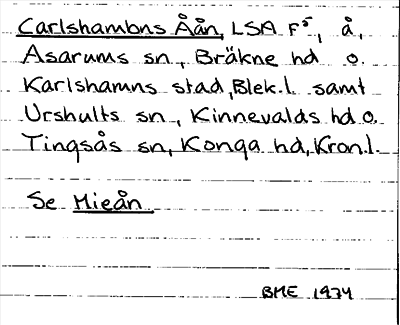 Carlshambns Åån, LSA F⁵, å,
Asarums sn, Bräkne hd o.
Karlshamns stad, Blek.l. samt
Urshults sn, Kinnevalds hd o.
Tingsås sn, Konga hd, Kron.l.
Se Mieån
BME 1974